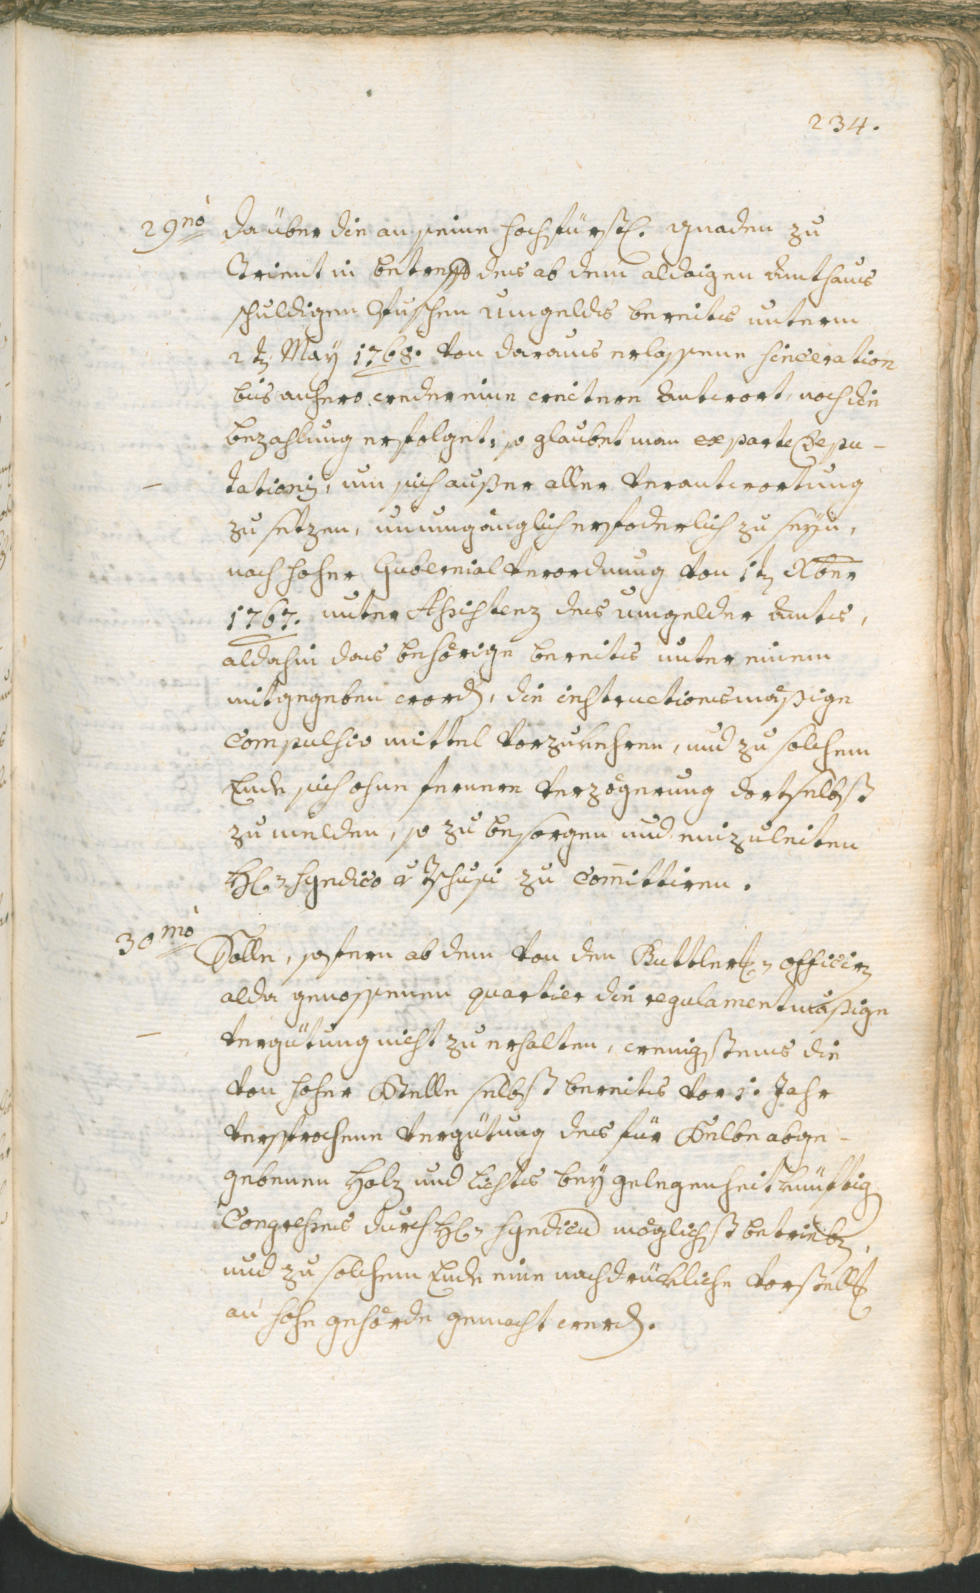 234.
29nò da über die an seine hochfürstl. Gnaden zu
Trient in betreff des ab dem aldaigen Amthaus
schuldigen Umgelds bereits unterm
2t. May 1768. von daraus erlassene Sinceration
bis anhero weder eine weitere Antwort, noch die
bezahlung erfolget; so glaubet man ex parte Depu-
tationis, um sich außer aller Verantwortung
zu setzen, unumgänglich erfoderlich zu seyn,
nach hoher Gubernial Verordnung von 1t. Xber
1767. unter Assistenz des Umgelder Amts,
aldahin das behörige bereits unter einem
mitgegeben word., die instructionsmäßige
Compulsiv mittel vorzukehren, und zu solchem
Ende sich ohne fernere Verzögerung dortselbst
zu melden, so zu besorgen und einzuleiten
H. Syndico zu Comittiren.
30mò Solle, sofern ab dem von den Buttler. officirn
alda genossenen quartier die regulamentmäßige
Vergütung nicht zu erhalten, wenigstens die
von hoher Stelle selbst bereits vor 1. Jahr
versprochene Vergütung des für Selbe abge-
gebenen Holz und Lichts bey gelegenheit künftig
Congresses durch H. Syndicu möglichst betrieben,
und zu solchem Ende eine nachdrückliche Vorstell.
an hohe gehörde gemacht werd.